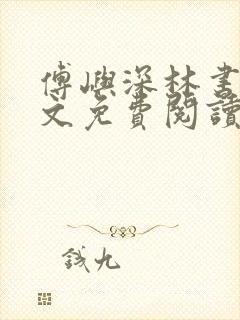 傅嶼深林書
文免費閱讀
錢九